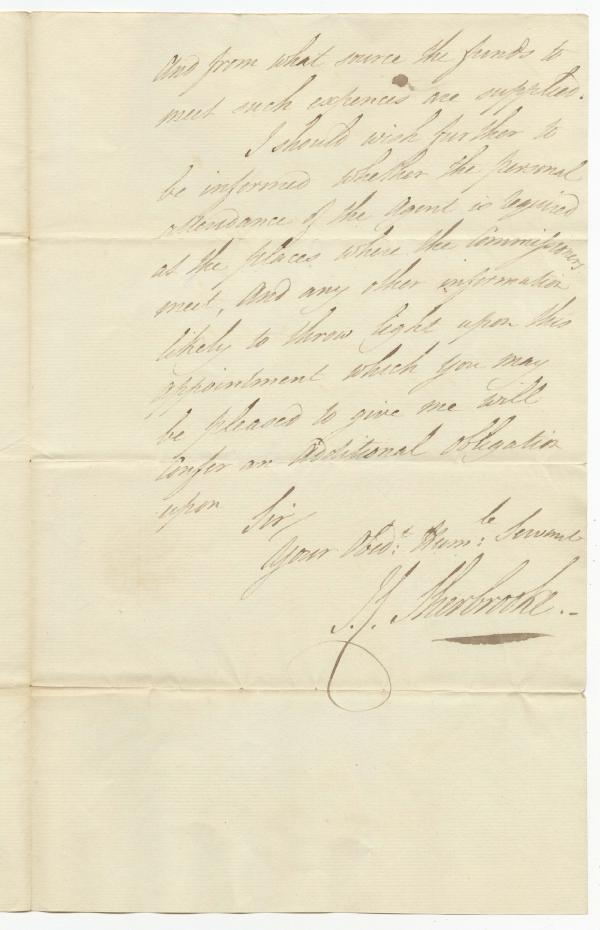 And from what source the funds to
meet such expences are supplied.
I should wish further to
be informed whether the personal
attendance of the Agent is required
at the places where the Commissioners
meet, And any other information
likely to throw light upon this
appointment which you may
be pleased to give me will
Confer an Additional Obligation
upon
Sir/
Your Obed:t Hum:le Servant
J. Sherbrooke.-